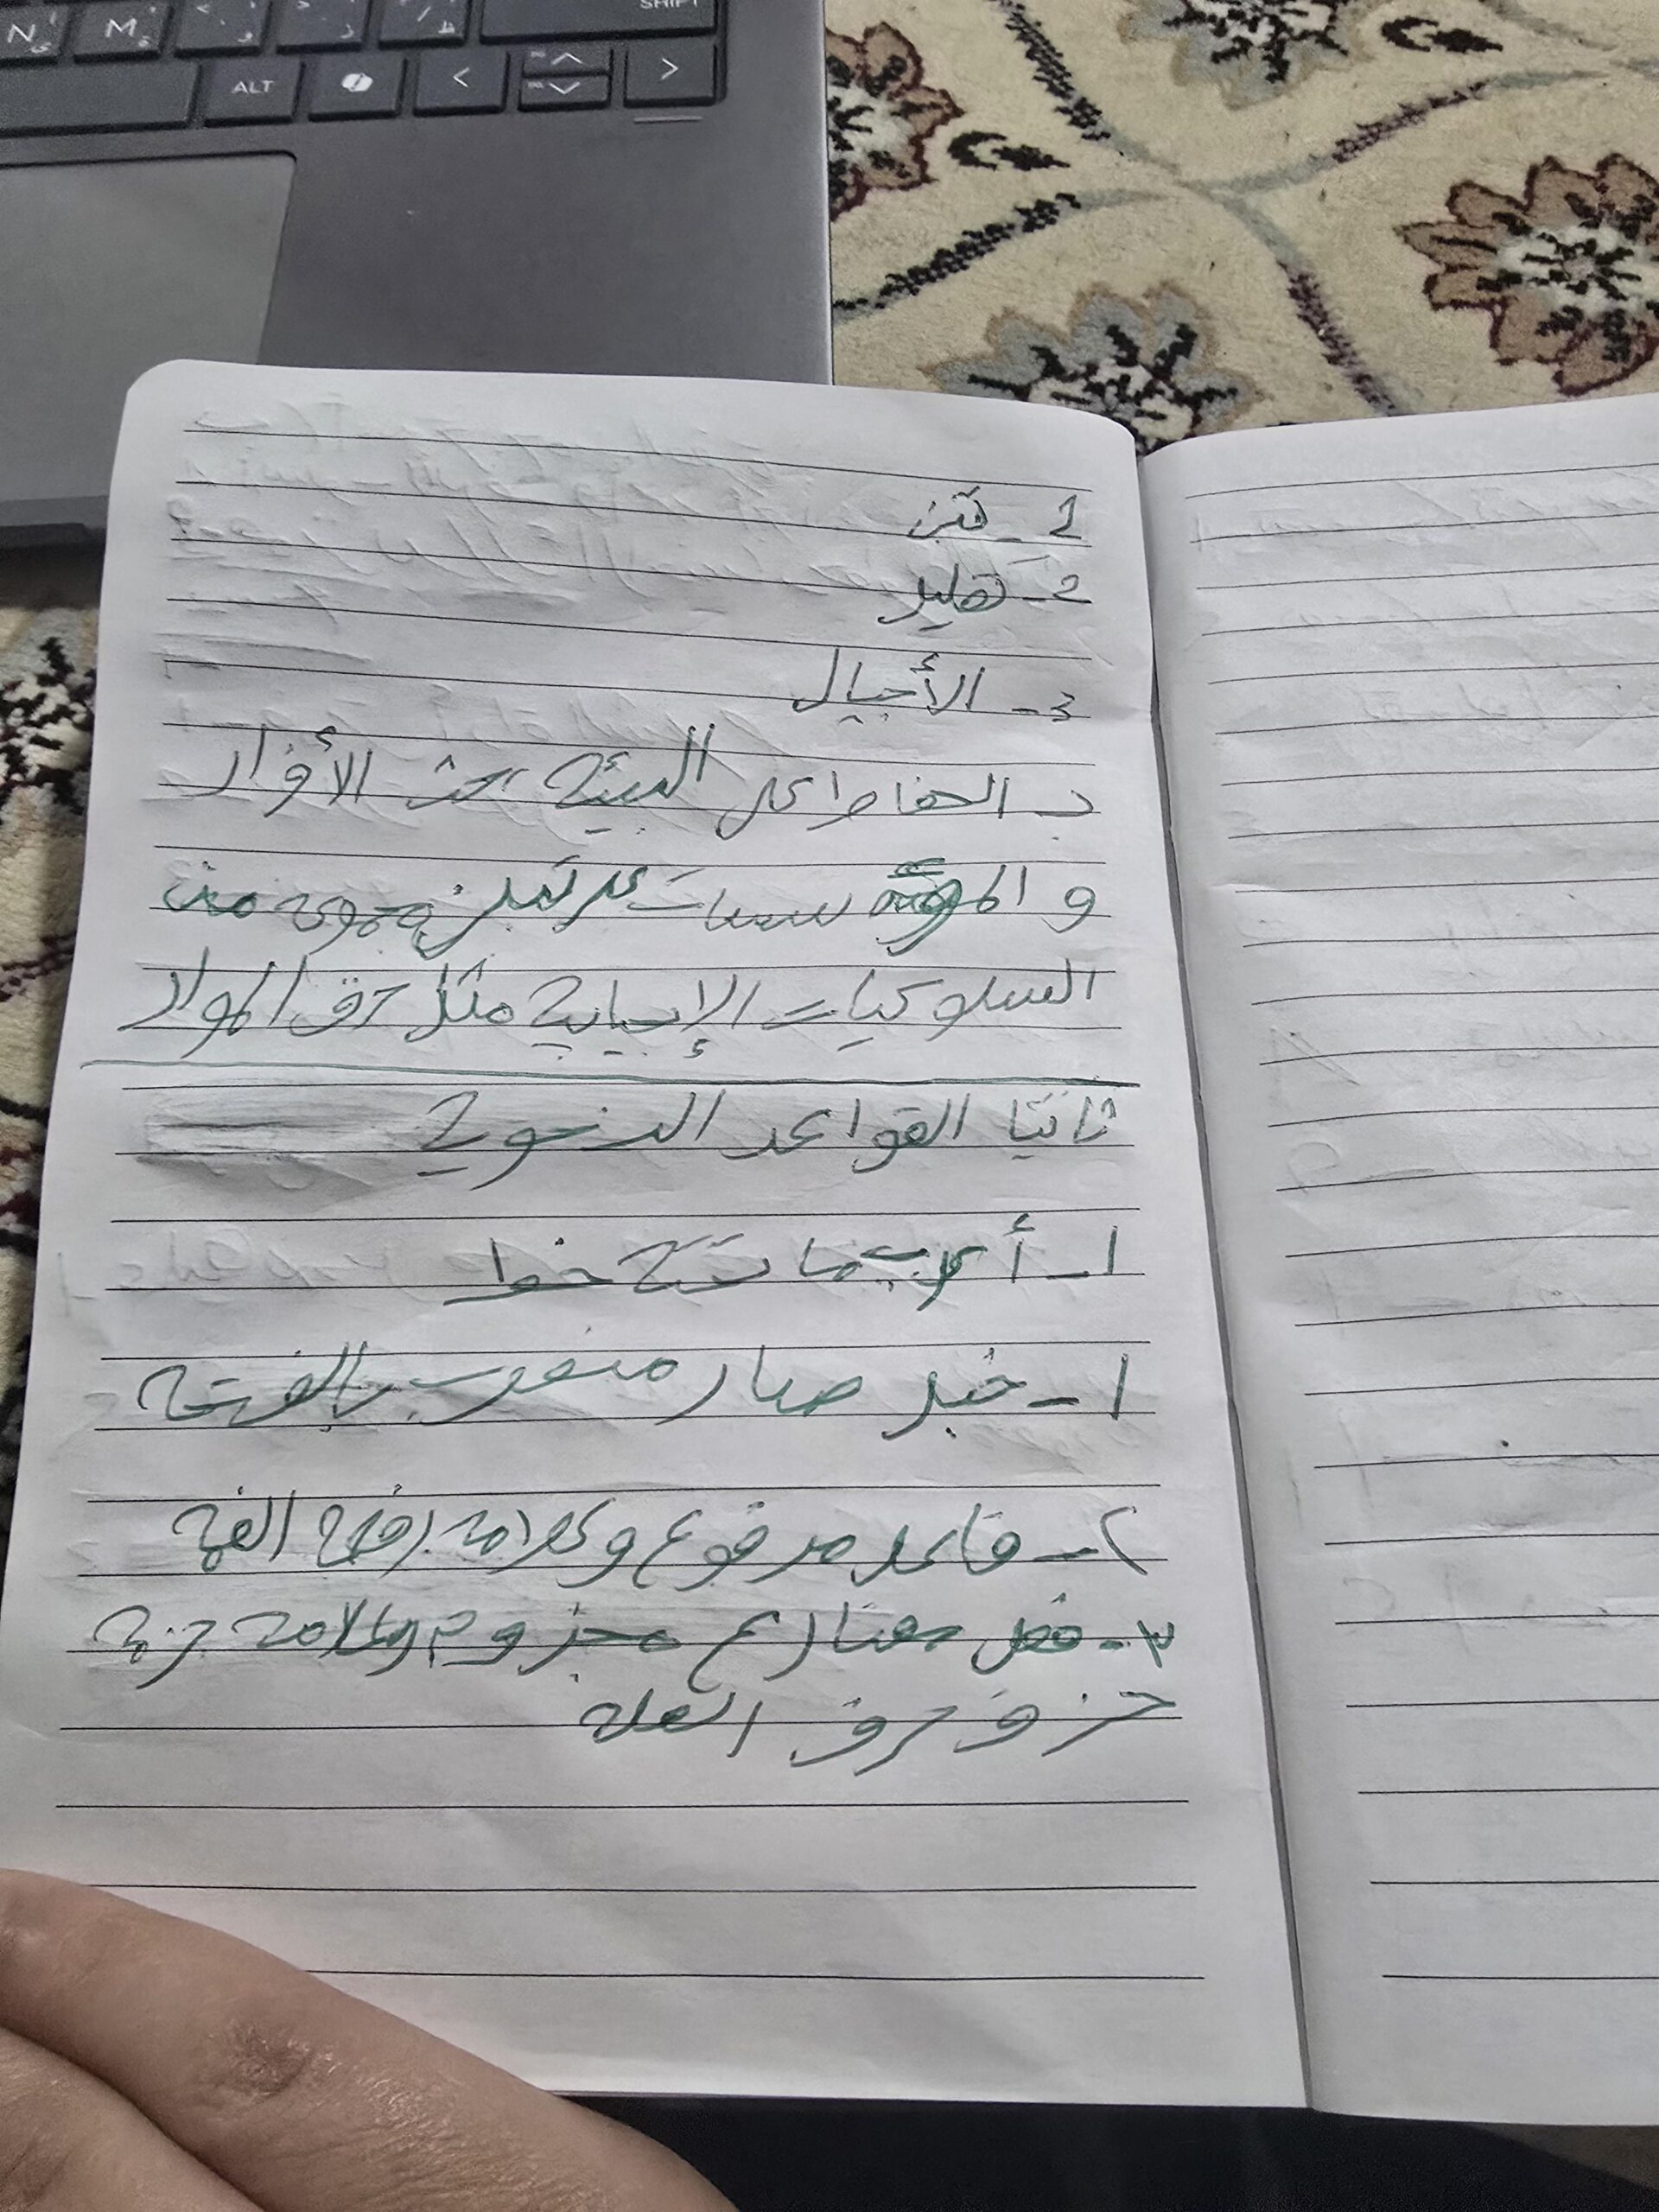 SHIFT
N M
ALT < >
1 - كنز
2 - تقليد
3 - الأجيال
ب - الحفاظ على البيئة بحث الأفراد
و المؤسسات على تبني مجموعة من
السلوكيات الإيجابية مثل حرق المواد
ثانيا القواعد النحوية
١ - أعرب ما تحته خط
١ - خبر صار منصوب بالفتحة
٢ - فاعل مرفوع وعلامة رفعه الضمة
٣ - فعل مضارع مجزوم وعلامة جزمه
حذف حرف العلة